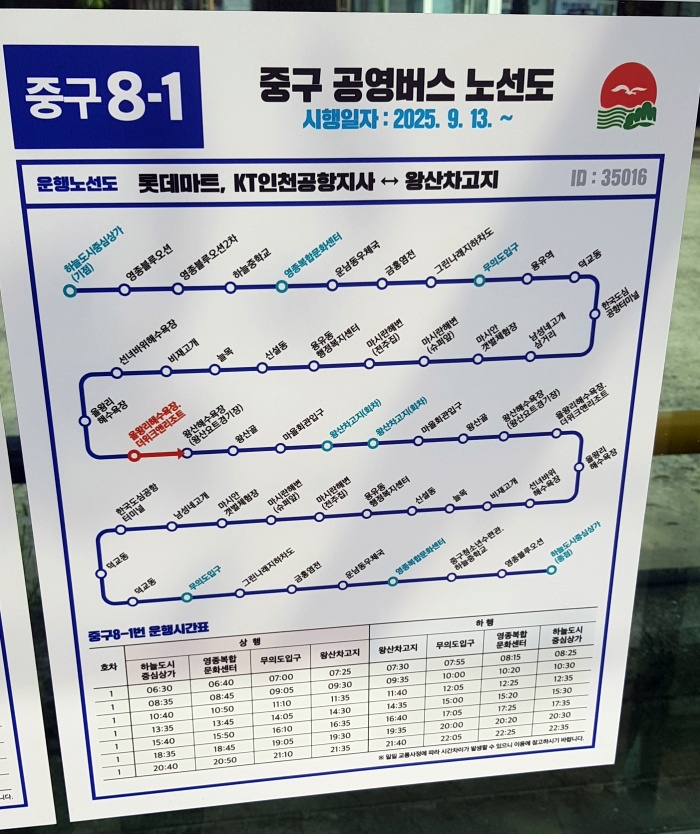 중구 8-1
중구 공영버스 노선도
시행일자 : 2025. 9. 13. ~
운행노선도 롯데마트, KT인천공항지사 ↔ 왕산차고지 ID : 35016
하늘도시중심상가
(기점)
영종블루오션
영종블루오션2차
하늘중학교
영종복합문화센터
운남동우체국
금홍염전
그린나래지하차도
무의도입구
용유역
덕교동
한국도심
공항터미널
선녀바위해수욕장
비재고개
늘목
신설동
용유동
행정복지센터
마시란해변
(전주집)
마시란해변
(슈퍼앞)
마시안
갯벌체험장
남성네고개
삼거리
을왕리
해수욕장
을왕리해수욕장.
더위크앤리조트
왕산해수욕장
(왕산요트경기장)
왕산골
마을회관입구
왕산차고지(회차)
왕산차고지(회차)
마을회관입구
왕산골
왕산해수욕장
(왕산요트경기장)
을왕리해수욕장.
더위크앤리조트
을왕리
해수욕장
한국도심공항
터미널
남성네고개
마시안
갯벌체험장
마시란해변
(슈퍼앞)
마시란해변
(전주집)
용유동
행정복지센터
신설동
늘목
비재고개
선녀바위
해수욕장
덕교동
덕교동
무의도입구
그린나래지하차도
금홍염전
운남동우체국
영종복합문화센터
중구청소년수련관.
하늘중학교
영종블루오션
하늘도시중심상가
(종점)
중구8-1번 운행시간표
호차 상 행 하 행
하늘도시
중심상가
영종복합
문화센터
무의도입구
왕산차고지
왕산차고지
무의도입구
영종복합
문화센터
하늘도시
중심상가
1 06:30 06:40 07:00 07:25 07:30 07:55 08:15 08:25
1 08:35 08:45 09:05 09:30 09:35 10:00 10:20 10:30
1 10:40 10:50 11:10 11:35 11:40 12:05 12:25 12:35
1 13:35 13:45 14:05 14:30 14:35 15:00 15:20 15:30
1 15:40 15:50 16:10 16:35 16:40 17:05 17:25 17:35
1 18:35 18:45 19:05 19:30 19:35 20:00 20:20 20:30
1 20:40 20:50 21:10 21:35 21:40 22:05 22:25 22:35
※ 당일 교통사정에 따라 시간차이가 발생할 수 있으니 이용에 참고하시기 바랍니다.
니다.